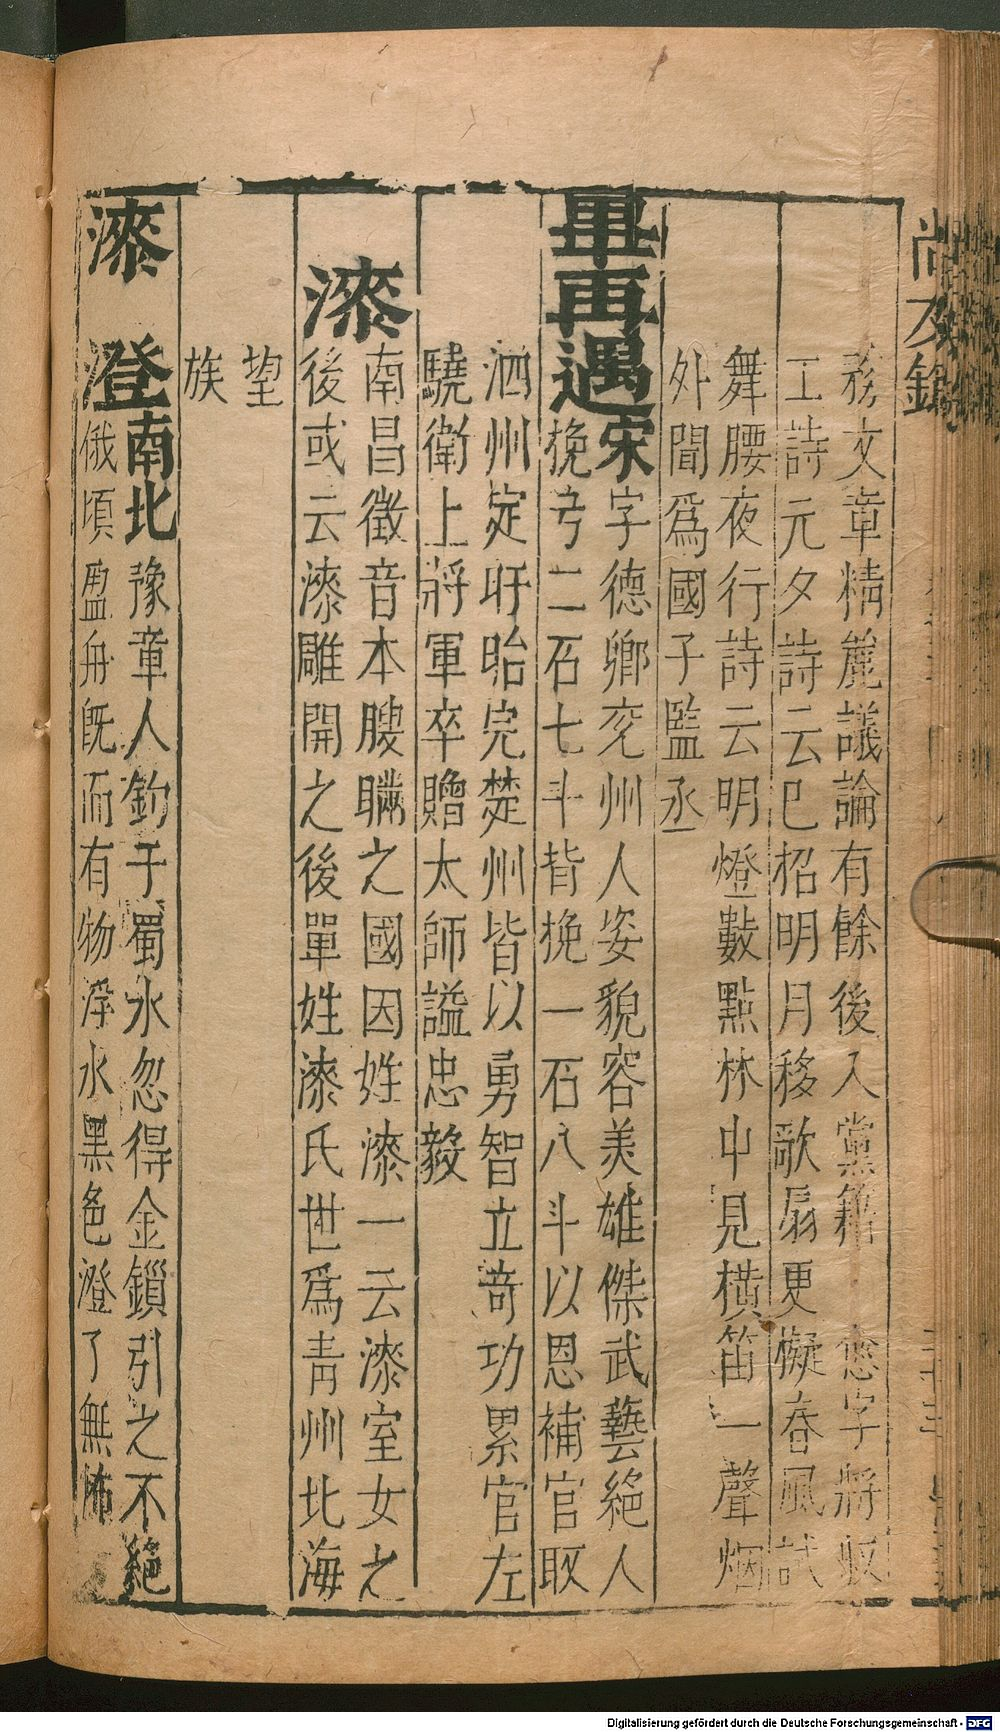 尚友錄
務文章精麄議論有餘後入黨籍 愈字將叔
工詩元夕詩云巳招明月移歌扇更擬春風試
舞腰夜行詩云明燈數點林中見橫笛一聲烟
外聞爲國子監丞
畢再遇宋
字德卿兖州人姿貌容美雄傑武藝絕人
挽弓二石七斗背挽一石八斗以恩補官取
泗州定盱眙完楚州皆以勇智立竒功累官左
驍衛上將軍卒贈太師謚忠毅
漆
南昌徵音本膄瞞之國因姓漆一云漆室女之
後或云漆雕開之後單姓漆氏世爲靑州北海
望
族
漆 澄南北
豫章人釣于蜀水忽得金鎻引之不絕
俄頃盈舟旣而有物浮水黑色澄了無怖
Digitalisierung gefördert durch die Deutsche Forschungsgemeinschaft - DFG